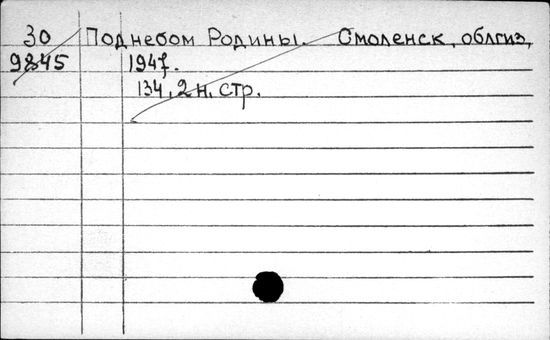 30 Под небом Родины. Смоленск, облгиз,
9845 1947.
134, 2 н. стр.